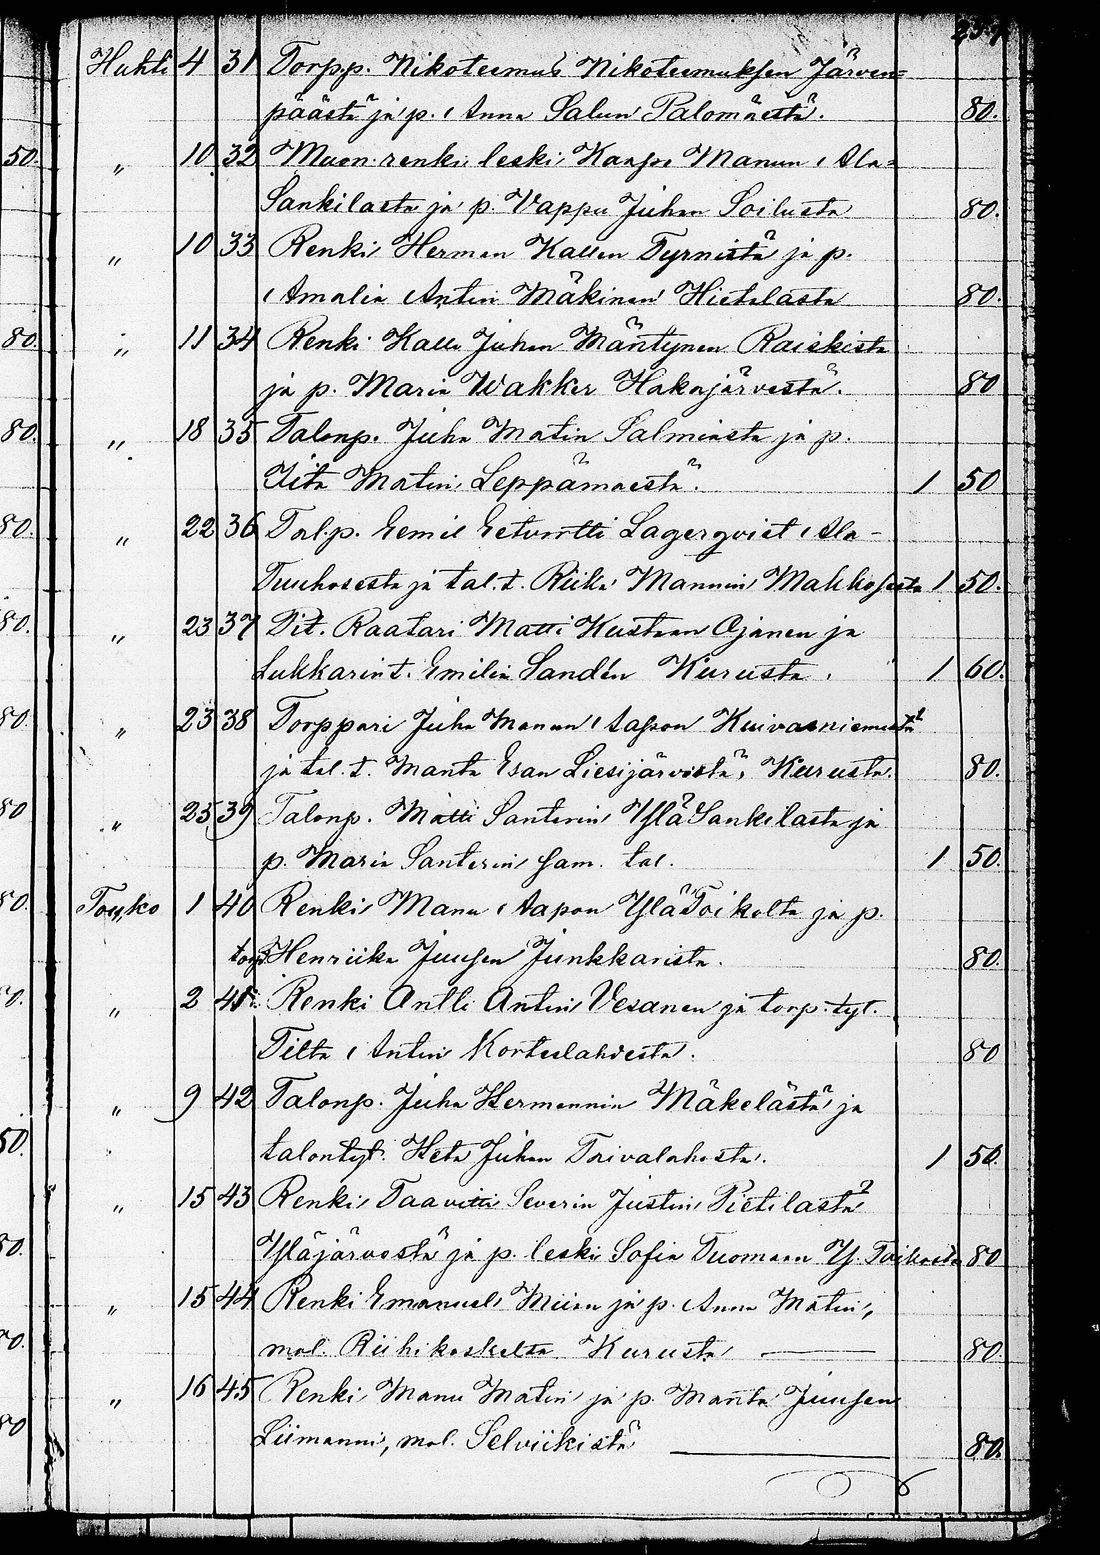 Huhti 4 31 Torpp. Nikoteemus Nikoteemuksen Järven=
päästä ja p. Anna Salun Palomäestä. 80.
50. „ 10 32 Muon. renki leski Kaapo Manun Ala=
Sankilasta ja p. Vappu Juhan Soilusta 80.
„ 10 33 Renki Herman Kallen Tyrnistä ja p.
Amalia Antin Mäkinen Hietalasta 80.
80. „ 11 34 Renki Kalle Juhan Mäntynen Raiskista
ja p. Maria Wakker Hakojärvestä. 80
80. „ 18 35 Talonp. Juha Matin Salmiasta ja p.
Iita Matin Leppämäestä. 1 50
80. „ 22 36 Tal.p. Eemil Eetvartti Lagerqvist Ala-
Tuuhosesta ja tal.t. Riika Mannin Mahkosesta 1 50.
80. „ 23 37 Pit. Raatari Matti Kustaan Ojanen ja
Lukkarin t. Emilia Sandén Kurusta. 1 60.
80. „ 23 38 Torppari Juha Manun Aapon Kuivasniemestä
ja tal.t. Manta Esan Liesijärvistä, Kurusta. 80.
80 „ 25 39 Talonp. Matti Santerin Ylä Sankilasta ja
p. Maria Santerin sam. tal. 1 50.
50. Touko 1 40 Renki Manu Aapon Ylä Toikolta ja p.
Henriika Juusen Junkkarista. 80.
„ 2 41 Renki Antti Antin Vesanen ja torp. tyt.
Tilta Antin Korteslahdesta. 80
„ 9 42 Talonp. Juha Hermannin Mäkelästä ja
50. talontyt. Heta Juhan Toivalahosta. 1 50.
„ 15 43 Renki Taavitti Severin Justin Pietilästä
80. Yläjärvestä ja p. leski Sofia Tuomaan Y. Toikosta 80
„ 15 44 Renki Emanuel Miina ja p. Anna Matin,
80. mol. Riihikoskelta Kurusta 80.
„ 16 45 Renki Manu Matin ja p. Manta Juusen
80 Liimanni, mol. Selviikistä 80.